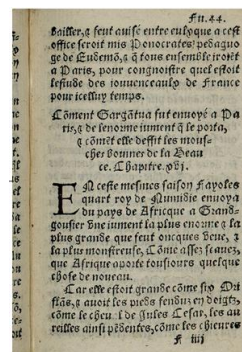 Fu.44.
bailler, & feut auisé entre eulx, que a cest
office seroit mis Ponocrates, pedaguo
ge de Eudemõ, & q̃ tous ensemble iroiẽt
a Paris, pour congnoistre quel estoit
lestude des iouuenceaulx de France
pour icelluy temps.
Cõment Gargãtua fut enuoyé a Pa
ris, & de lenorme iument q̃ le porta,
& cõmẽt elle deffit les mous-
ches bouines de la Beau
ce. Chapitre. xvj.
EN ceste mesmes saison Fayoles
quart roy de Numidie enuoya
du pays de Africque a Grand-
gousier vne iument la plus enorme & la
plus grande que feut oncques veue, & 
la plus monstreuse. Cõme assez sçauez,
que Afrique aporte tousiours quelque
chose de noueau.
Car elle estoit grande cõme six Ori
flãs, & auoit les pieds fenduz en doigtz,
cõme le cheual de Jules Cesar, les au
reilles ainsi pẽdentes, cõme les chieures
F iiij